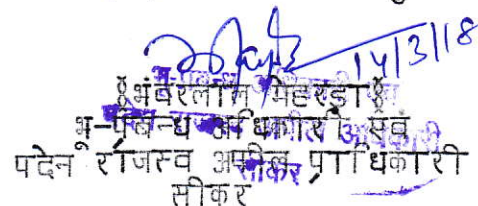 14/3/18
(भंवरलाल मेहरड़ा)
भू-प्रबन्ध अधिकारी एवं
पदेन राजस्व अपील प्राधिकारी
सीकर